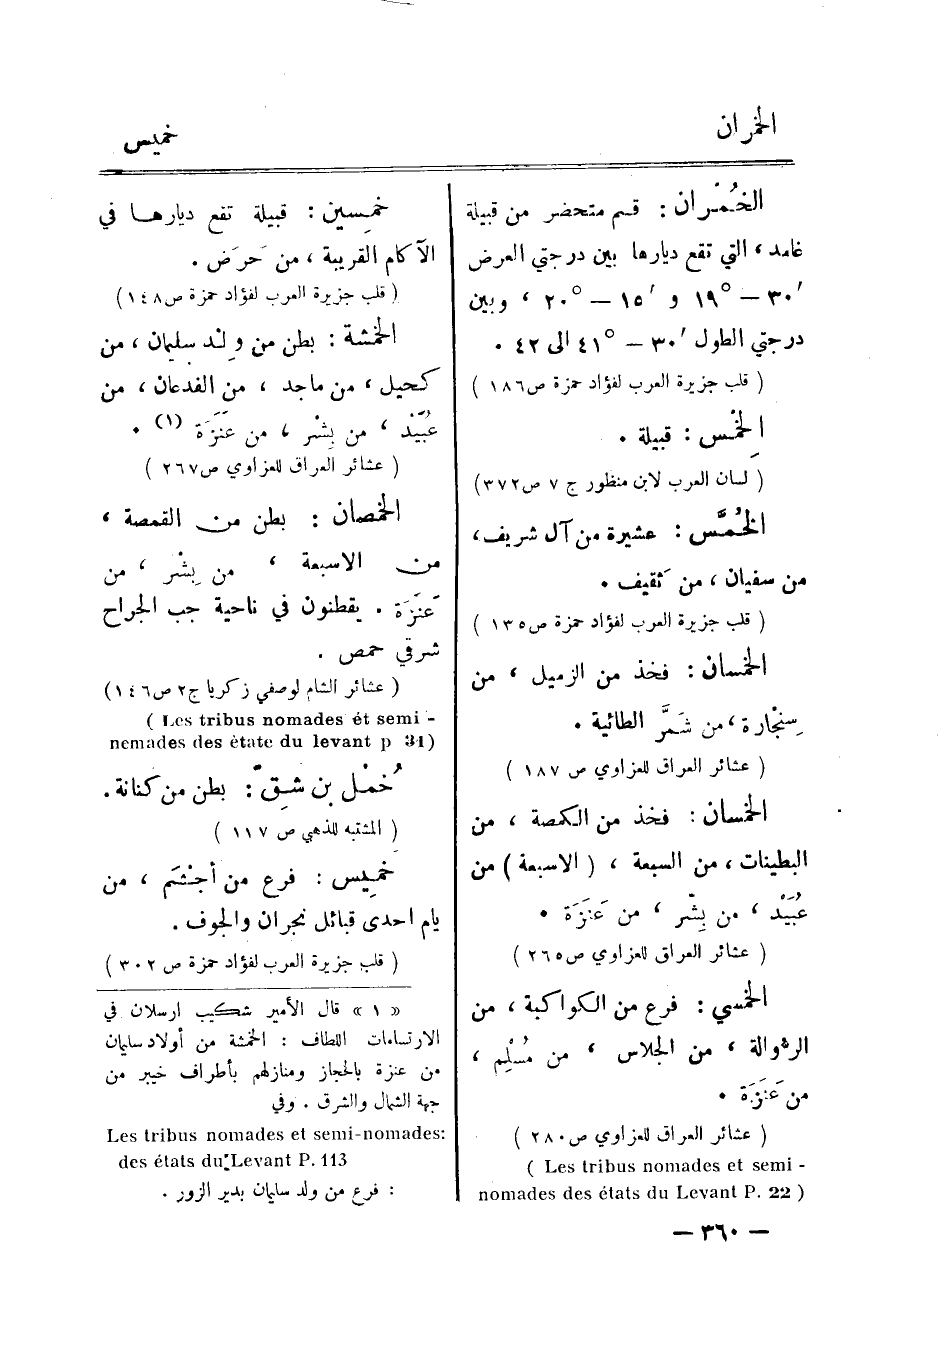 الخمران
خميس
الخُمْران : قسم متحضر من قبيلة
غامد ، التي تقع ديارها بين درجتي العرض
٣٠′ — ١٩° و ١٥′ — ٢٠° ، وبين
درجتي الطول ٣٠′ — ٤١° الى ٤٢ .
( قلب جزيرة العرب لفؤاد حمزة ص١٨٦ )
الخِمْس : قبيلة .
( لسان العرب لابن منظور ج ٧ ص٣٧٢)
الخُمَّس : عشيرة من آل شريف ،
من سفيان ، من ثقيف .
( قلب جزيرة العرب لفؤاد حمزة ص١٣٥ )
الخمسان : فخذ من الزميل ، من
سِنْجارة ، من شَمَّر الطائية .
( عشائر العراق للعزاوي ص ١٨٧ )
الخمسان : فخذ من الكمصة ، من
البطينات ، من السبعة ، ( الاسبعة ) من
عُبَيْد ، من بِشْر ، من عَنَزَة .
( عشائر العراق للعزاوي ص٢٦٥ )
الخمسي : فرع من الكواكبة ، من
الرُّوالة ، من الجلاس ، من مُسْلِم ،
من عَنَزَة .
( عشائر العراق للعزاوي ص٢٨٠ )
( Les tribus nomades et semi -
nomades des états du Levant P. 22 )
خمسين : قبيلة تقع ديارها في
الآكام القريبة ، من حَرَض .
( قلب جزيرة العرب لفؤاد حمزة ص١٤٨ )
الخمشة : بطن من ولد سليمان ، من
كحيل ، من ماجد ، من الفدعان ، من
عُبَيْد ، من بِشْر ، من عَنَزَة (١) .
( عشائر العراق للعزاوي ص٢٦٧ )
الخمصان : بطن من القمصة ،
من الاسبعة ، من بِشْر ، من
عَنَزَة . يقطنون في ناحية جب الجراح
شرقي حمص .
( عشائر الشام لوصفي زكريا ج٢ ص١٤٦ )
( Les tribus nomades ét semi -
nemades des étate du levant p 31)
خُمْل بن شِقّ : بطن من كنانة .
( المشتبه للذهبي ص ١١٧ )
خميس : فرع من أجْشَم ، من
يام احدى قبائل نجران والجوف .
( قلب جزيرة العرب لفؤاد حمزة ص ٣٠٢ )
« ١ » قال الأمير شكيب ارسلان في
الارتسامات اللطاف : الخمشة من أولاد سليمان
من عنزة بالحجاز ومنازلهم بأطراف خيبر من
جهة الشمال والشرق . وفي
Les tribus nomades et semi-nomades:
des états du Levant P. 113
: فرع من ولد سليمان بدير الزور .
— ٣٦٠ —